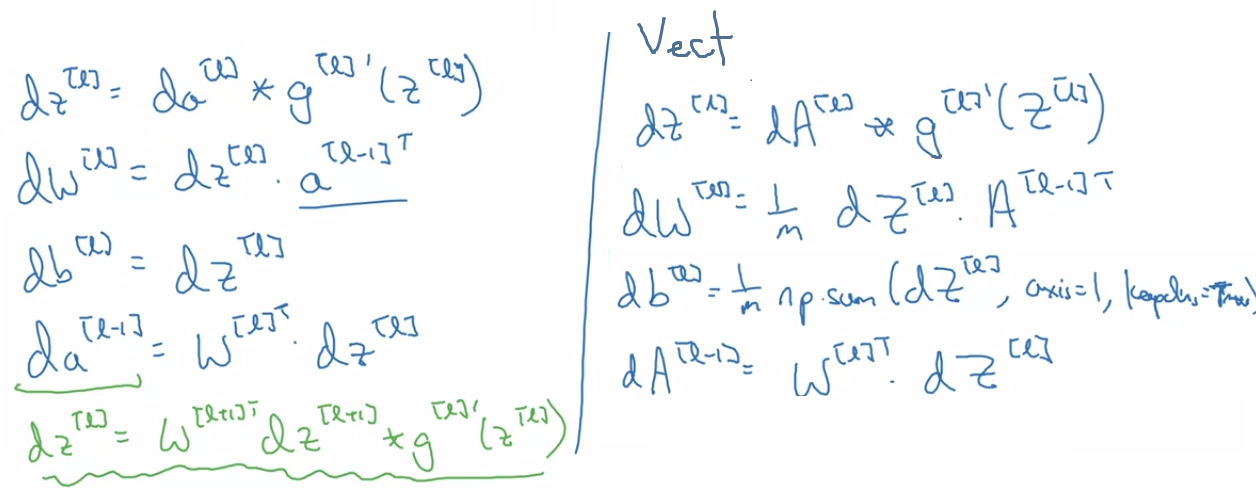 dz^[l] = da^[l] * g^[l]'(z^[l])
dw^[l] = dz^[l] · a^[l-1]T
db^[l] = dz^[l]
da^[l-1] = w^[l]T · dz^[l]
dz^[l] = w^[l+1]T dz^[l+1] * g^[l]'(z^[l])
Vect
dz^[l] = dA^[l] * g^[l]'(z^[l])
dW^[l] = 1/m dZ^[l] · A^[l-1]T
db^[l] = 1/m np.sum(dZ^[l], axis=1, keepdims=True)
dA^[l-1] = W^[l]T · dZ^[l]